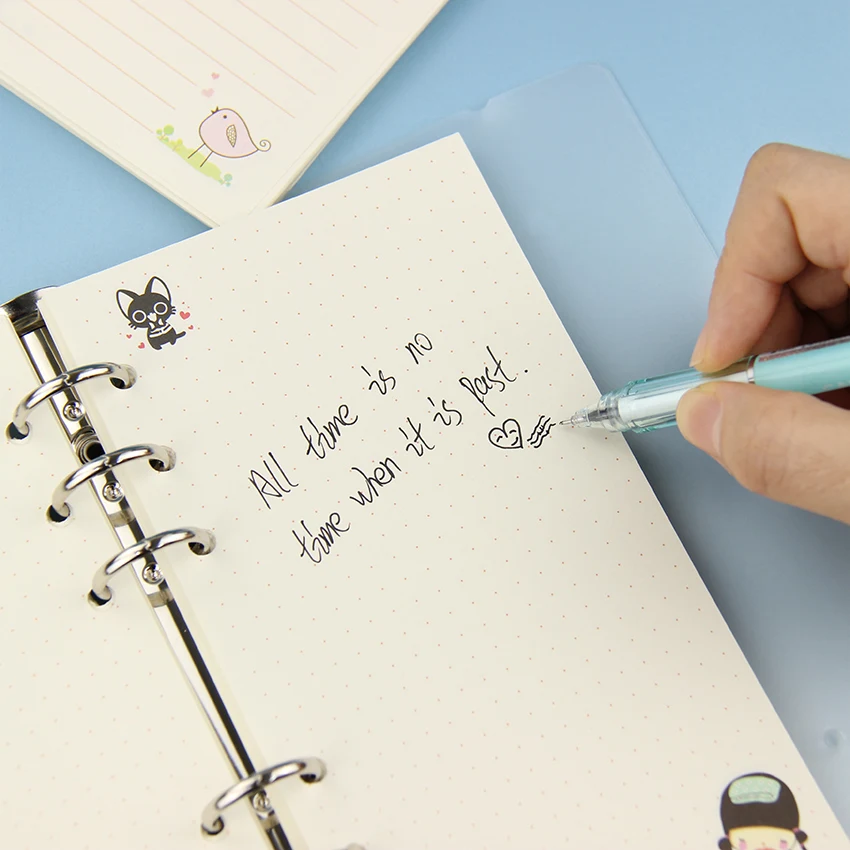 All time is no
time when it is past.